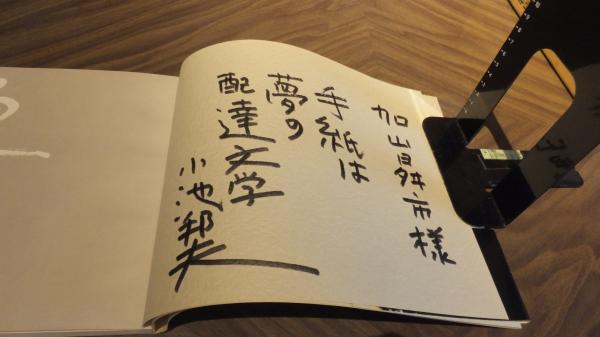 加山昇市様
手紙は
夢の
配達文学
小池邦夫